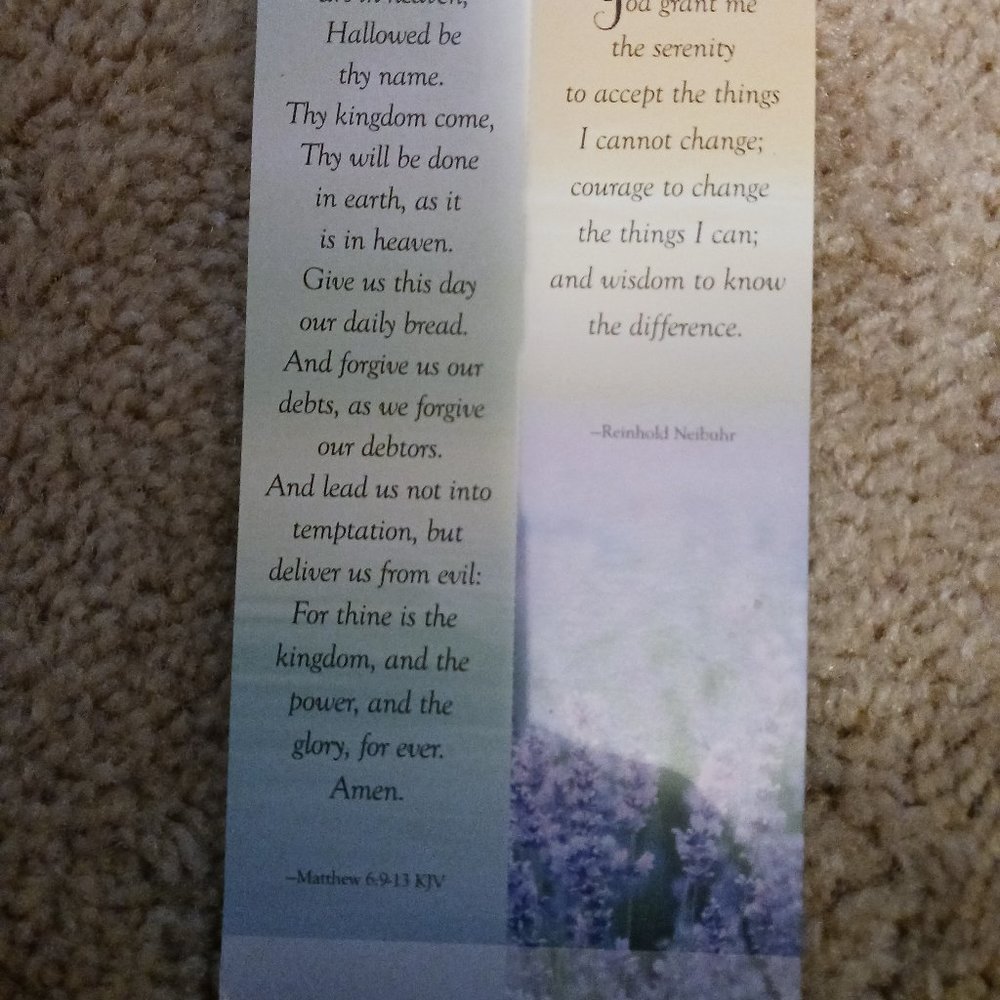 in heaven,
Hallowed be
thy name.
Thy kingdom come,
Thy will be done
in earth, as it
is in heaven.
Give us this day
our daily bread.
And forgive us our
debts, as we forgive
our debtors.
And lead us not into
temptation, but
deliver us from evil:
For thine is the
kingdom, and the
power, and the
glory, for ever.
Amen.
–Matthew 6:9-13 KJV
God grant me
the serenity
to accept the things
I cannot change;
courage to change
the things I can;
and wisdom to know
the difference.
–Reinhold Neibuhr